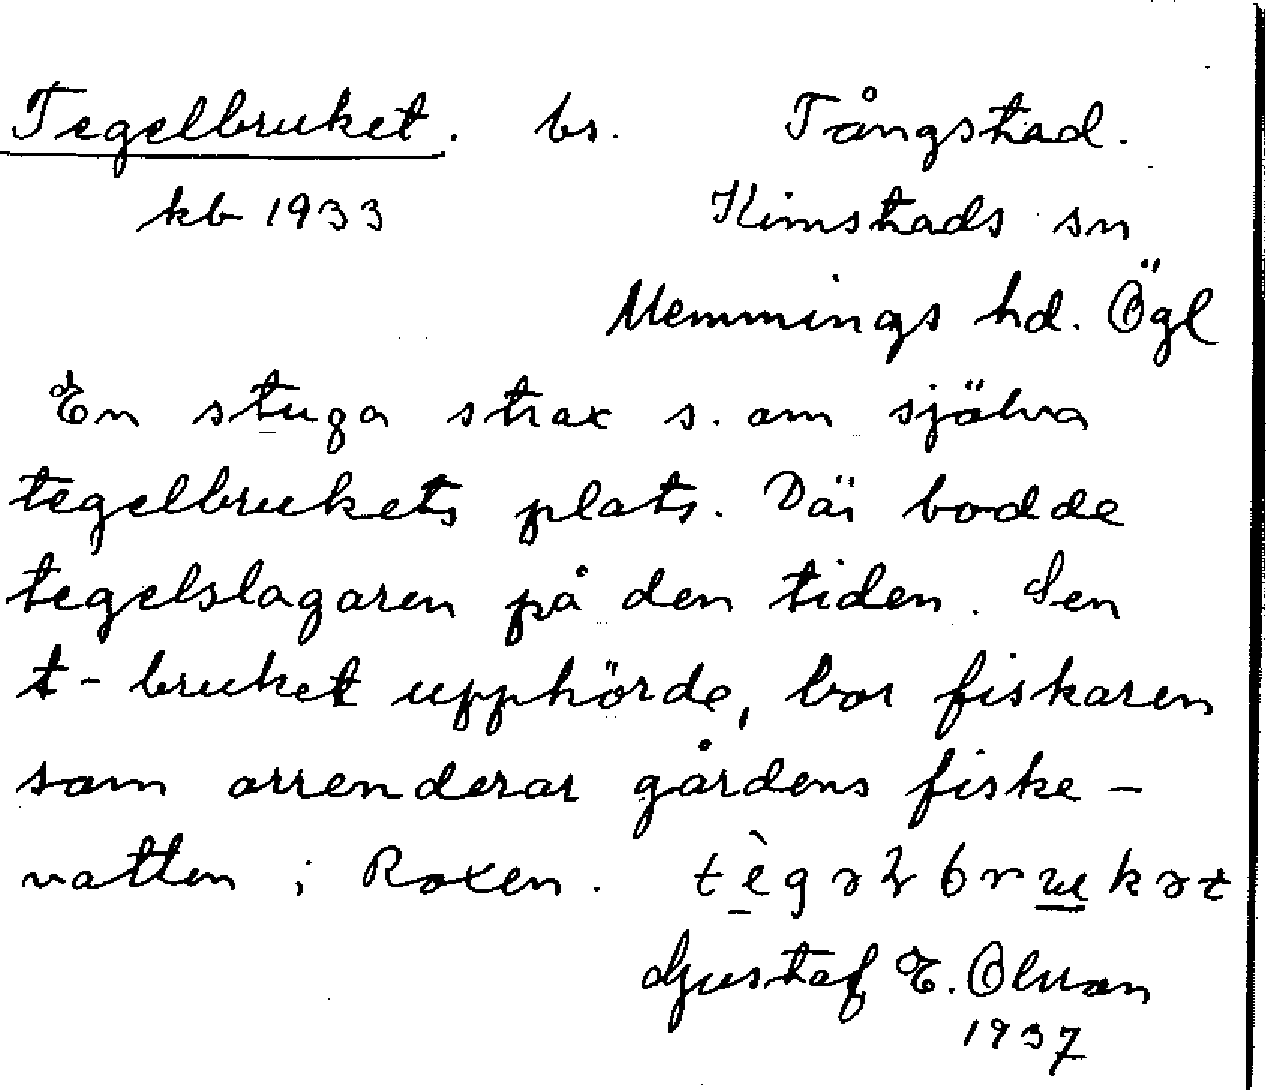 Tegelbruket. bs. Tångstad.
kb 1933 Kimstads sn
Memmings hd. Ögl
En stuga strax s. om själva
tegelbrukets plats. Där bodde
tegelslagaren på den tiden. Sen
t-bruket upphörde, bor fiskaren
som arrenderar gårdens fiske-
vatten i Roxen.
Gustaf E. Olson
1937